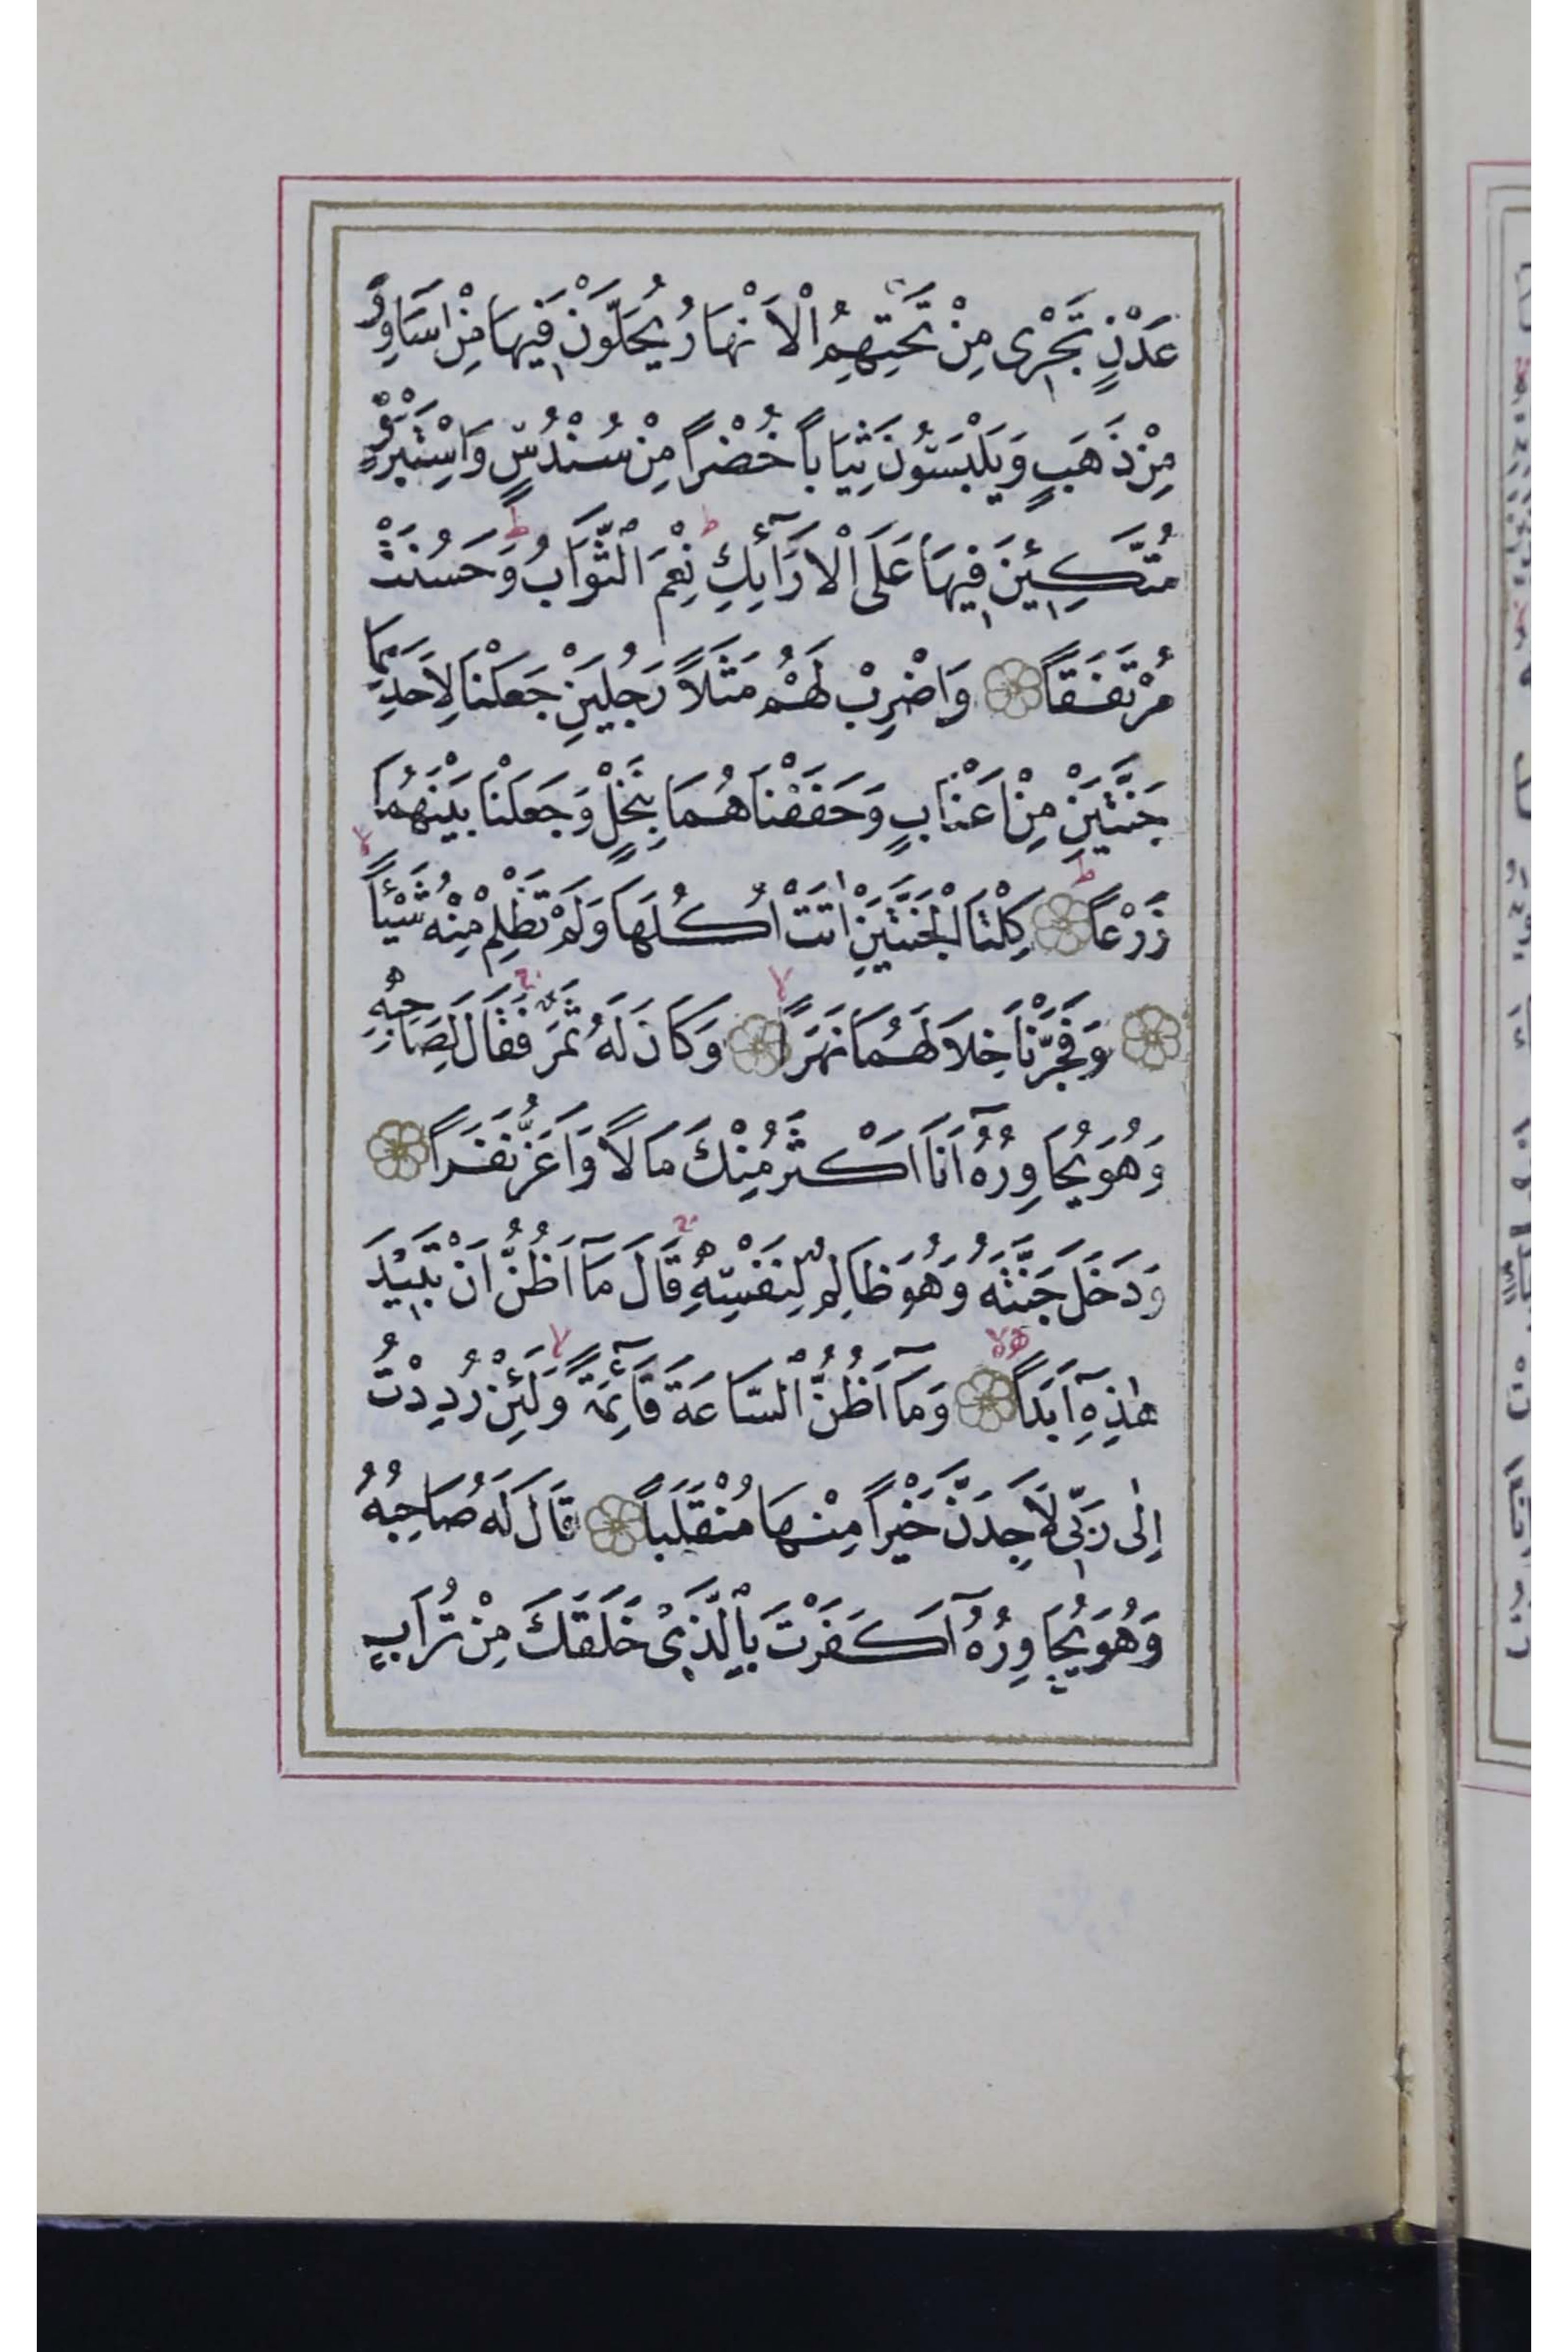 عَدْنٍ تَجْرٖى مِنْ تَحْتِهِمُ الْاَنْهَارُ يُحَلَّوْنَ فٖيهَا مِنْ اَسَاوِرَ
مِنْ ذَهَبٍ وَيَلْبَسُونَ ثِيَابًا خُضْرًا مِنْ سُنْدُسٍ وَاِسْتَبْرَقٍ
مُتَّكِـٖٔينَ فٖيهَا عَلَى الْاَرَٓائِكِ ط نِعْمَ الثَّوَابُ ط وَحَسُنَتْ
مُرْتَفَقًا ۝ وَاضْرِبْ لَهُمْ مَثَلًا رَجُلَيْنِ جَعَلْنَا لِاَحَدِهِمَا
جَنَّتَيْنِ مِنْ اَعْنَابٍ وَحَفَفْنَاهُمَا بِنَخْلٍ وَجَعَلْنَا بَيْنَهُمَا
زَرْعًا ط ۝ كِلْتَا الْجَنَّتَيْنِ اٰتَتْ اُكُلَهَا وَلَمْ تَظْلِمْ مِنْهُ شَيْـًٔا لا
۝ وَفَجَّرْنَا خِلَالَهُمَا نَهَرًا لا ۝ وَكَانَ لَهُ ثَمَرٌ ج فَقَالَ لِصَاحِبِهٖ
وَهُوَ يُحَاوِرُهُٓ اَنَا اَكْثَرُ مِنْكَ مَالًا وَاَعَزُّ نَفَرًا ۝
وَدَخَلَ جَنَّتَهُ وَهُوَ ظَالِمٌ لِنَفْسِهٖ ج قَالَ مَٓا اَظُنُّ اَنْ تَبٖيدَ
هٰذِهٖٓ اَبَدًا لا ۝ وَمَٓا اَظُنُّ السَّاعَةَ قَٓائِمَةً لا وَلَئِنْ رُدِدْتُ
اِلٰى رَبّٖى لَاَجِدَنَّ خَيْرًا مِنْهَا مُنْقَلَبًا ۝ قَالَ لَهُ صَاحِبُهُ
وَهُوَ يُحَاوِرُهُٓ اَكَفَرْتَ بِالَّذٖى خَلَقَكَ مِنْ تُرَابٍ